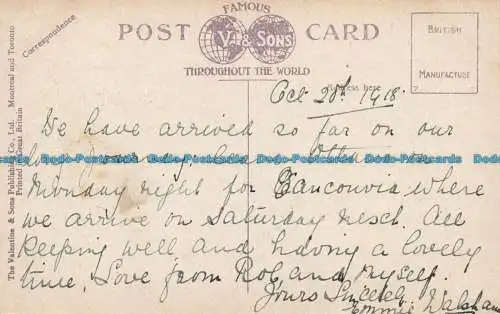 FAMOUS
POST V. & SONS CARD
THROUGHOUT THE WORLD
Correspondence
Address here
BRITISH
MANUFACTURE
The Valentine & Sons Publishing Co., Ltd. Montreal and Toronto
Printed in Great Britain
Oct 28th 1918
We have arrived so far on our
Dodo-Postcards Dodo-Postcards Dodo-Postcards Dodo-Postcards Dodo-Postcards
Monday night for Vancouvia where
we arrive on Saturday next. All
keeping well and having a lovely
time. Love from Rob and myself.
Yours Sincerely
Emmie